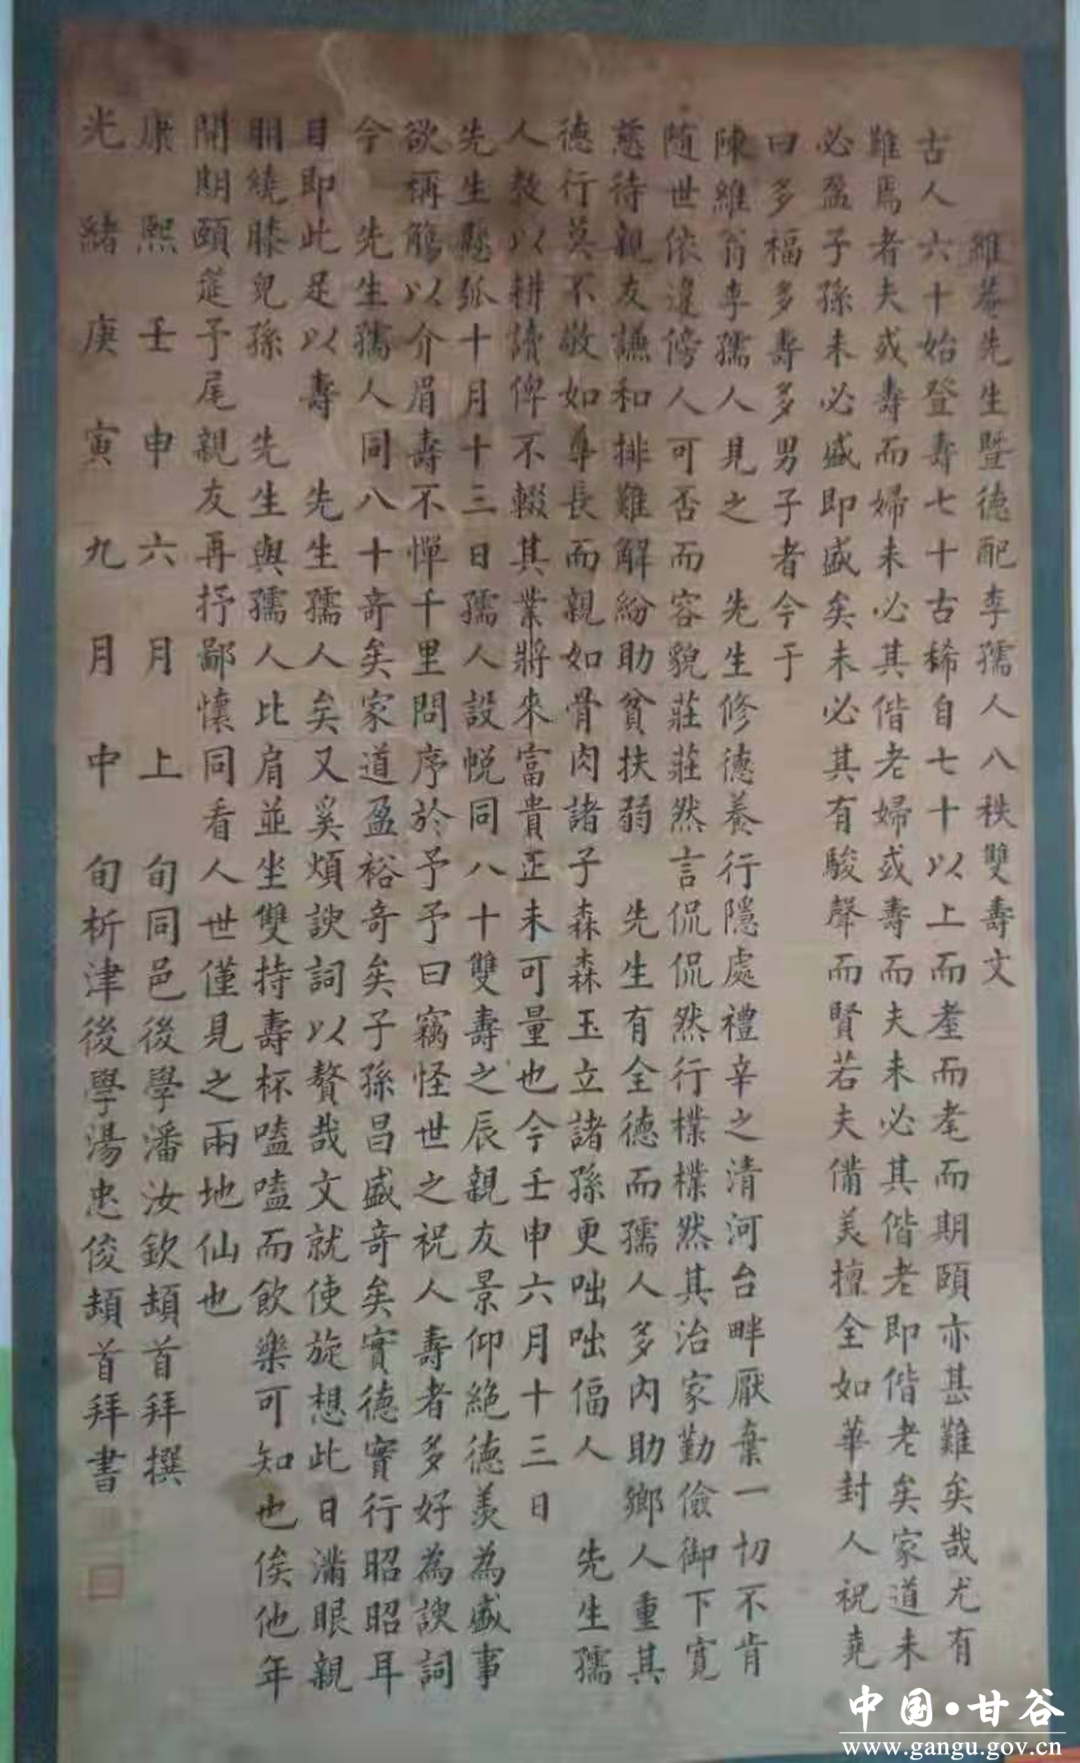 維菴先生暨德配李孺人八秩雙壽文
古人六十始登壽七十古稀自七十以上而耋而耄而期頤亦甚難矣哉尤有
難焉者夫或壽而婦未必其偕老婦或壽而夫未必其偕老即偕老矣家道未
必盈子孫未必盛即盛矣未必其有駿聲而賢若夫備美擅全如華封人祝堯
曰多福多壽多男子者今于
陳維翁李孺人見之 先生修德養行隱處禮辛之清河台畔厭棄一切不肯
隨世依違傍人可否而容貌莊莊然言侃侃然行樸樸然其治家勤儉御下寬
慈待親友謙和排難解紛助貧扶弱 先生有全德而孺人多內助鄉人重其
德行莫不敬如尊長而親如骨肉諸子森森玉立諸孫更咄咄偪人 先生孺
人教以耕讀俾不輟其業將來富貴正未可量也今壬申六月十三日
先生懸弧十月十三日孺人設帨同八十雙壽之辰親友景仰絶德羨為盛事
欲稱觴以介眉壽不憚千里問序於予予曰竊怪世之祝人壽者多好為諛詞
今 先生孺人同八十奇矣家道盈裕奇矣子孫昌盛奇矣實德實行昭昭耳
目即此足以壽 先生孺人矣又奚煩諛詞以贅哉文就使旋想此日滿眼親
朋繞膝兒孫 先生與孺人比肩並坐雙持壽杯嗑嗑而飲樂可知也俟他年
開期頤筵予尾親友再抒鄙懷同看人世僅見之兩地仙也
康熙壬申六月上旬同邑後學潘汝欽頓首拜撰
光緒庚寅九月中旬析津後學湯忠俊頓首拜書
中国·甘谷
www.gangu.gov.cn